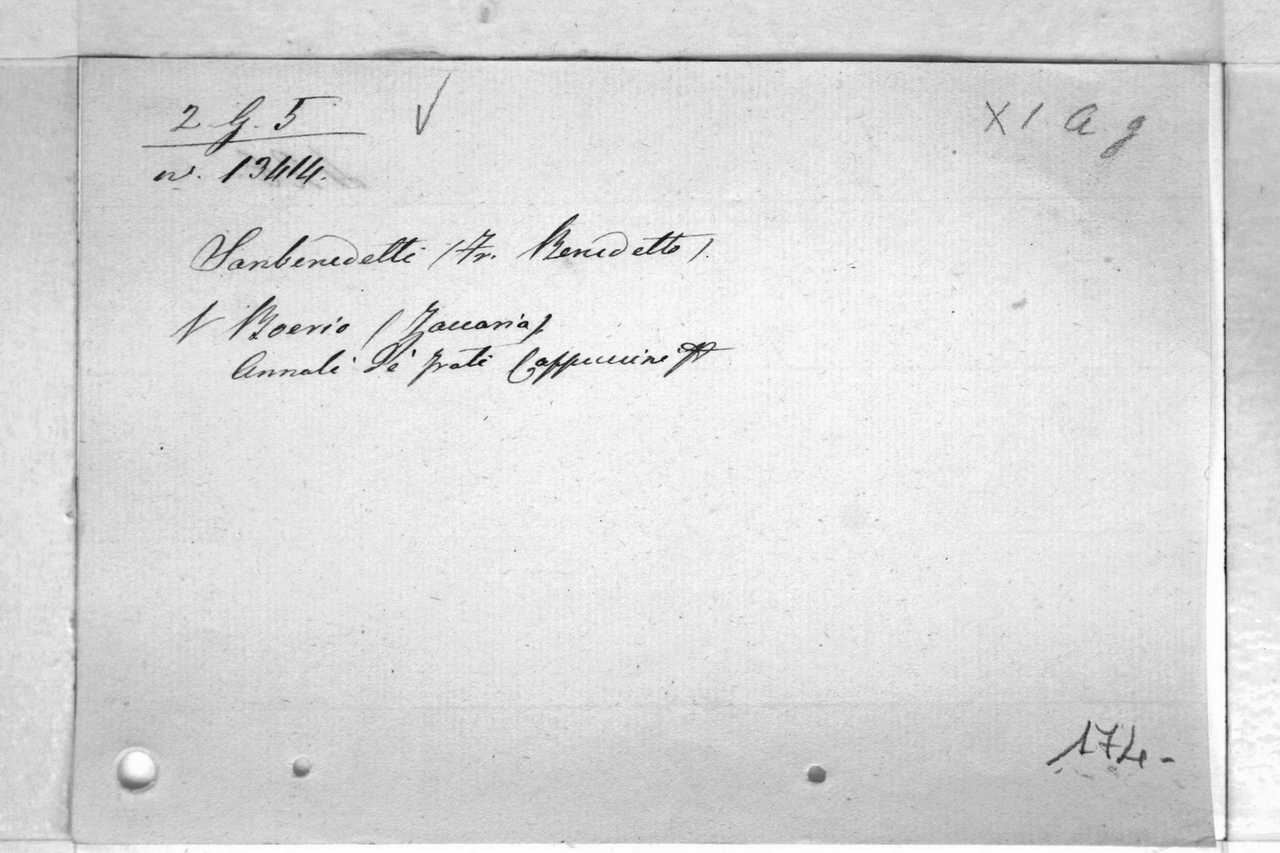 2 G. 5
X I a g
n. 13414.
Sanbenedetti (Fr. Benedetto).
V Boerio (Zaccaria)
Annali de' frati Cappuccini
174.-